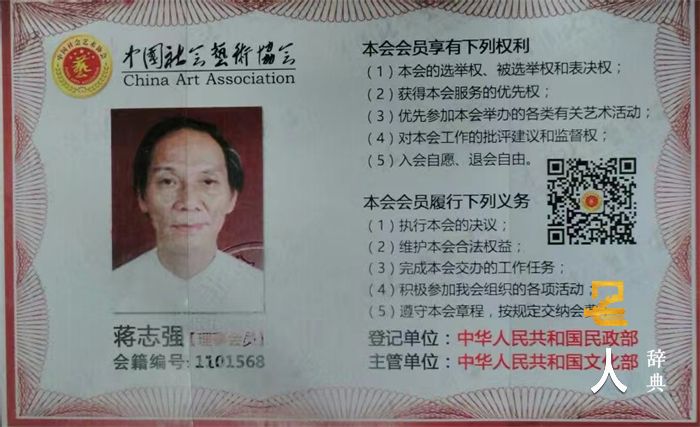 中國社会藝術協会
China Art Association
蒋志强【理事会员】
会籍编号:1101568
本会会员享有下列权利
(1)本会的选举权、被选举权和表决权;
(2)获得本会服务的优先权;
(3)优先参加本会举办的各类有关艺术活动;
(4)对本会工作的批评建议和监督权;
(5)入会自愿、退会自由。
本会会员履行下列义务
(1)执行本会的决议;
(2)维护本会合法权益;
(3)完成本会交办的工作任务;
(4)积极参加我会组织的各项活动;
(5)遵守本会章程,按规定交纳会
登记单位:中华人民共和国民政部
主管单位:中华人民共和国文化部
人辞典